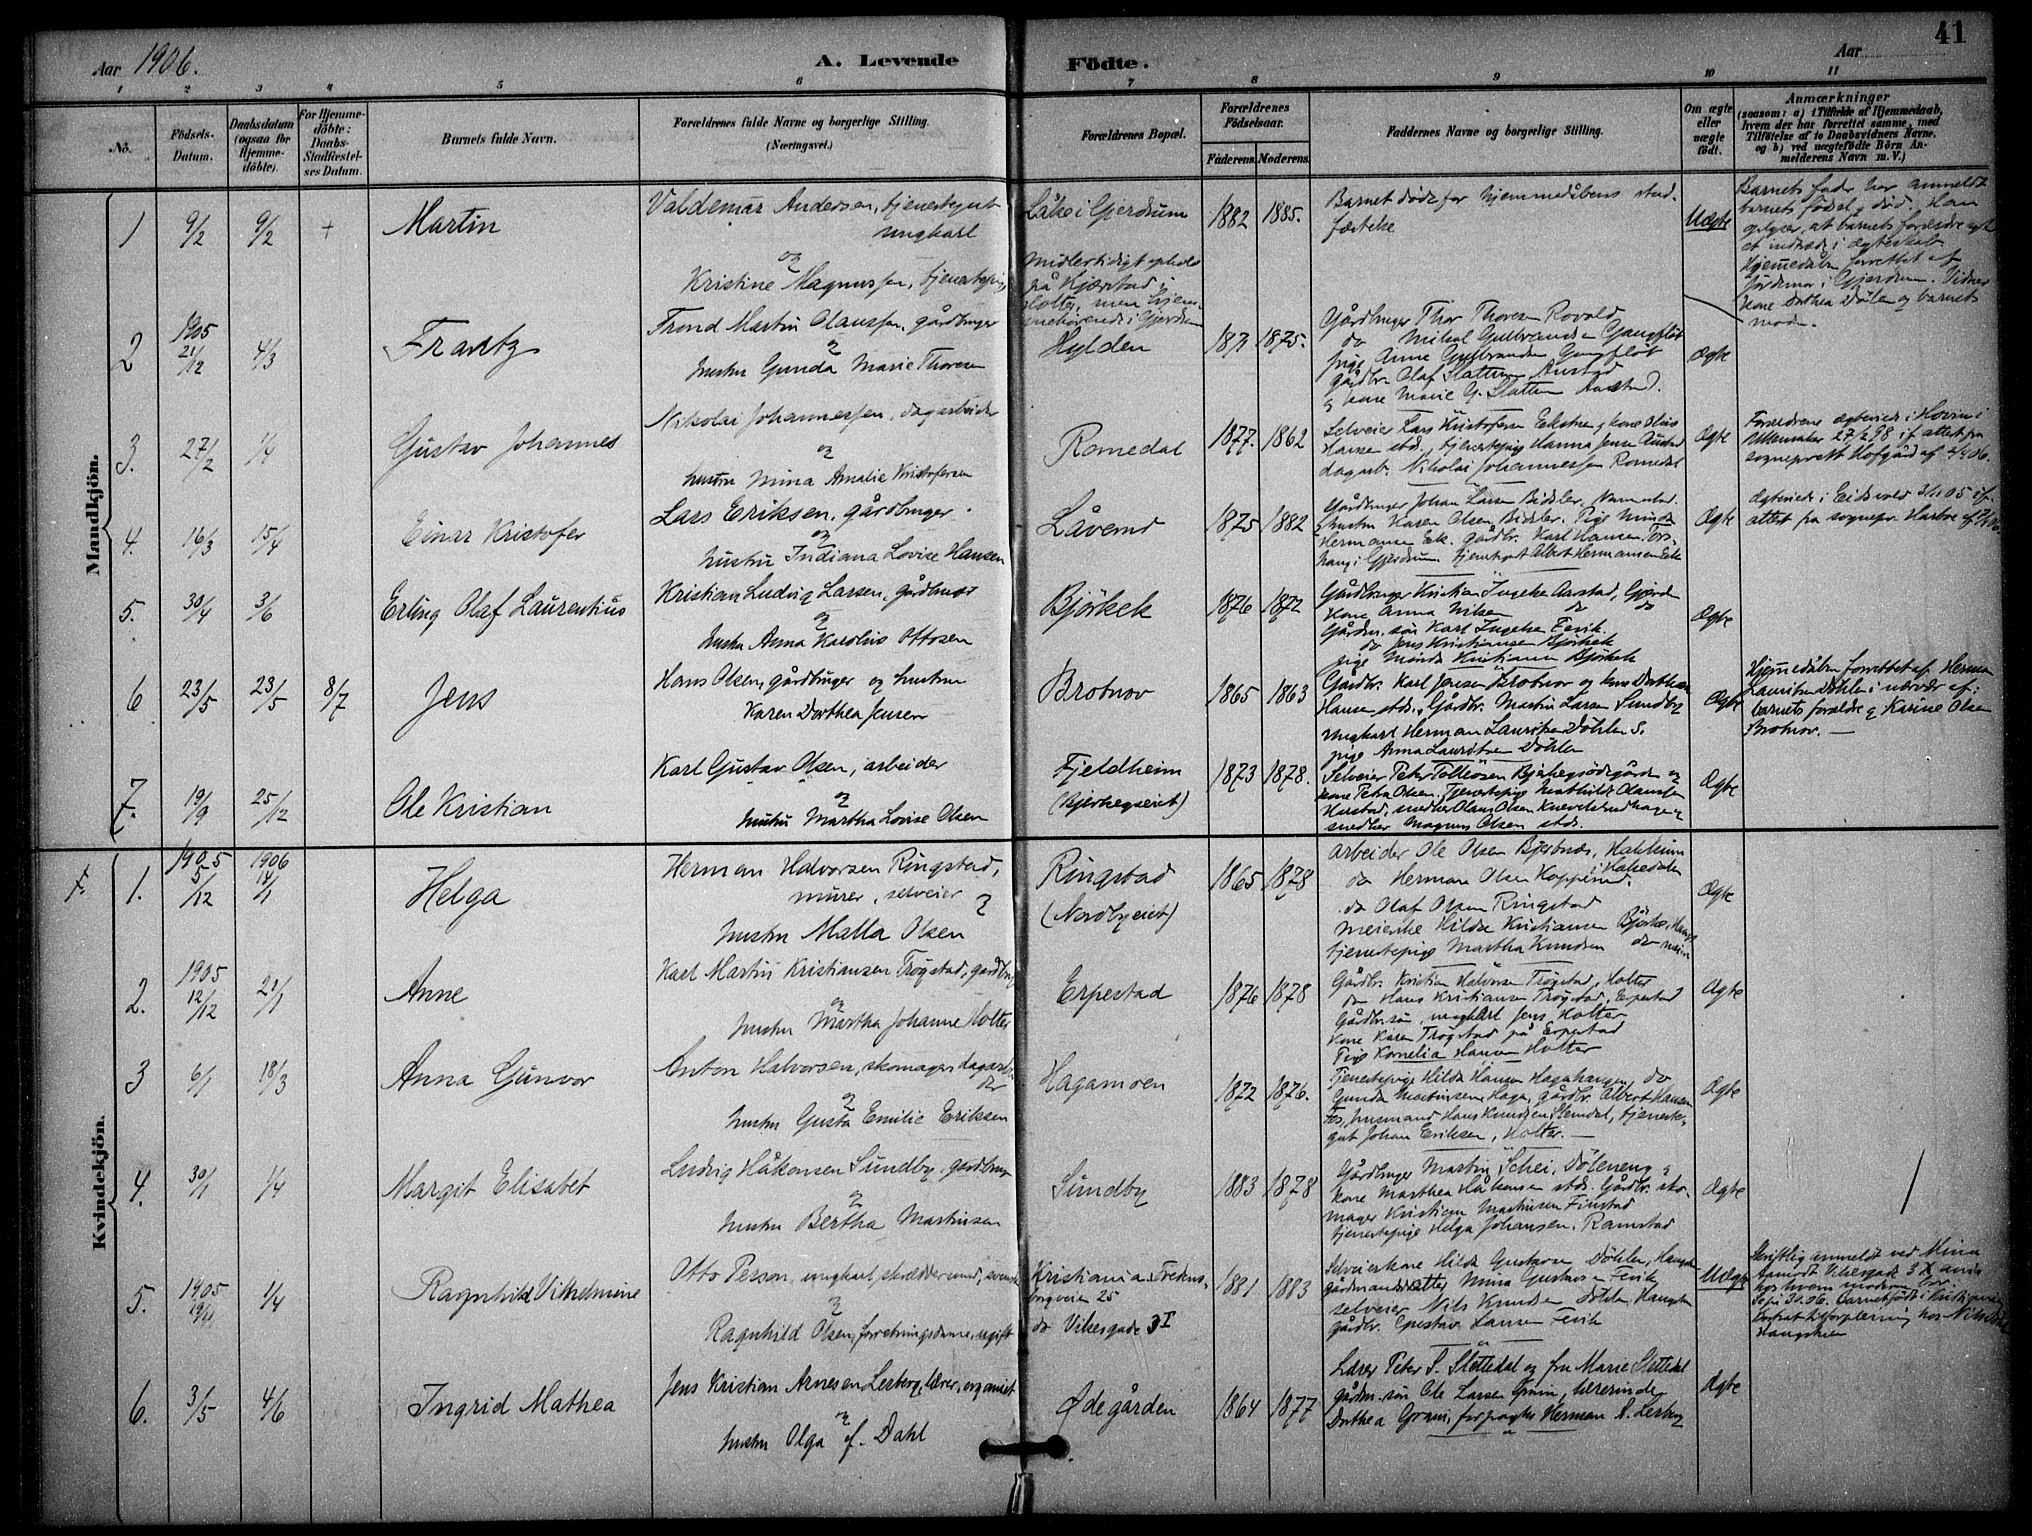 41
Aar 1906.
A. Levende Födte.
Aar
1 2 3 4 5 6 7 8 9 10 11
No.
Födsels-Datum.
Daabsdatum (ogsaa for Hjemme-döbte).
For Hjemme-döbte: Daabs-Stadfæstel-ses Datum.
Barnets fulde Navn.
Forældrenes fulde Navne og borgerlige Stilling.
(Næringsvei.)
Forældrenes Bopæl.
Forældrenes Födselsaar.
Faderens. Moderens.
Faddernes Navne og borgerlige Stilling.
Om ægte eller uægte födt.
Anmærkninger
(saasom: a) i Tilfælde af Hjemmedaab, hvem der har forrettet samme, med Tilföielse af to Daabsvidners Navne, og b) ved uægtefödte Börn Anmelderens Navn m. V.)
Mandkjön.
1 9/2 9/2 + Martin
Valdemar Andersen, tjenestegut
ungkarl
og
Kristine Magnussen, tjenestepig
Låke i Gjerdrum
Midlertidigt ophold
på Kjærstad i
Holter, men hjem-
mehörende i Gjerdrum
1882 1885.
Barnet döde för hjemmedåbens stad-
fæstelse
Uægte
Barnets fader har anmeldt
barnets födsel og död. Han
oplyser, at barnets forældre
indtræde i ægteskab
Hjemmedåben forrettet af
Jordemor i Gjerdrum. Vidner
kone Dorthea Dölen og barnets
moder.
2 1905 21/12 4/3 Frantz
Trond Martin Olaussen, gårdbruger
og
hustru Gunda Marie Thoresen
Hylden
1871 1875.
Gårdbruger Thor Thoresen Rovold
do Mikal Gulbrandsen Gangflöt
pige Anne Gulbrandsen Gangflöt
gårdbr. Olaf Slatten Austad
og kone Marie G. Slatten Austad.
Ægte
3. 27/2 1/4 Gustav Johannes
Nikolai Johannessen, dagarbeider
og
hustru Mina Amalie Kristofersen
Romedal
1877. 1862
Selveier Lars Kristofersen Ekstrøm og kone
Hansen stds., tjenestepig Hanna Jensen Austad
dagarb. Nikolai Johannessen Romedal
Ægte
Forældrene ægteviede i Hovin i
Ullensaker 27/2 98 if. attest fra
sogneprest Hofgård af 4/4 06.
4. 16/3 15/4 Einar Kristofer
Lars Eriksen, gårdbruger.
og
hustru Indiana Lovise Hansen
Låvend
1875 1882
Gårdbruger Johan Larsen Bidsler, Nannestad
hustru Karen Olsen Bidsler. Pige Minda
Hermansen Ek. gårdbr. Karl Hansen
haug i Gjerdrum tjenstegut Albert Hermansen Ek
Ægte
Ægteviede i Eidsvold 3/11 05 if.
attest fra sognepr.
5. 30/4 3/6 Erling Olaf Laurentius
Kristian Ludvig Larsen, gårdbruger
og
hustru Anna Karolius Ottosen
Björkek
1876 1872
Gårdbruger Kristian Ingelsen Aarstad, Gjerdr.
Kone Anna Nilsen do do
Gårdm. sön Karl Ingelsen Fevik.
do Jens Kristiansen Björkek
pige Minda Kristiansen Björkek
Ægte
6 23/5 23/5 8/7 Jens
Hans Olsen, gårdbruger og hustru
Karen Dorthea Jensen
Brotnov
1865 1863
Gårdbr. Karl Jensen Brotnov og kone Dorthea
Hansen stds., Gårdbr. Martin Larsen Sundby
ungkarl Herman Lauritsen Döhlen S.
pige Anna Lauritsen Döhlen
Ægte
Hjemmedåben forrettet af Herman
Lauritsen Döhlen i nærvær af:
barnets forældre og Karine Olsen
Brotnov.
7. 19/9 25/12 Ole Kristian
Karl Gustav Olsen, arbeider
og
hustru Martha Lovise Olsen
Fjeldheim
(Bjerkegseiet)
1873 1878.
Selveier Peter Tollefsen Bjerkegsödegården og
kone Petra Olsen. Tjenestepige Mathilde Olaussen
Harstad, snedker Olaus Olsen Knevelsrudhagen og
snedker Magnus Olsen stds.
Ægte
Kvindekjön.
1. 1905 5/12 1906 14/1 Helga
Herman Halvorsen Ringstad,
murer, selveier
og
hustru Malla Olsen
Ringstad
(Nordbyeiet)
1865 1878
arbeider Ole Olsen Bjertnæs, Hakkim
do Herman Olsen Kopperud. i Hakedalen
do Olaf Olsen Ringstad
meierske Hilda Kristiansen Björke,
tjenestepige Martha Knudsen do
Ægte
2. 1905 12/12 21/1 Anne
Karl Martin Kristiansen Trögstad, gårdbrug
og
hustru Martha Johanne Holter
Erpestad
1876 1878
Gårdbr. Kristian Halvorsen Trögstad, Holter
do Hans Kristiansen Trögstad, Erpestad
Gårdbr. sön, ungkarl Jens Holter
Kone Karen Trögstad på Erpestad
Pige Kornelia Hansen Holter
Ægte
3 6/1 18/3 Anna Gunvor
Anton Halvorsen, skomager, dagarbei
der
og
hustru Gusta Emilie Eriksen
Hagamoen
1872 1876.
Tjenestepige Hilda Hansen Hagahaugen, do
Gunda Martinsen Haga, gårdbr. Albert Hansen
Fos, husmand Hans Knudsen Slemdal, tjeneste-
gut Johan Eriksen, Holter.
Ægte
4. 30/1 1/4 Margit Elisabet
Ludvig Håkonsen Sundby, gårdbruger
og
hustru Bertha Martinsen
Sundby
1883 1878
Gårdbruger Martin Schei, Döleneng og
kone Marthea Håkonsen stds. Gårdbr. sko-
mager Kristian Martinsen Finstad
tjenestepige Helga Johansen, Ramstad
Ægte
5. 1905 19/11 1/4 Ragnhild Vilhelmine
Otto Person, ungkarl, skræddersvend, svensk
og
Ragnhild Olsen, forretningsdame, ugift
Kristiania, Fredens-
borgveien 25
do Vibesgade 3 I
1881 1883
Selveierkone Hilda Gustavsen Döhlen, Haugen
gårdmandsdatter Mina Gustavsen Fevik
selveier Nils Knudsen Döhlen Haugen
gårdbr. Gustav Hansen Fevik
Uægte
Skriftlig anmeldt ved Mina
Aamodt Vibesgade 3
hos hvem moderen bor.
Barnet födt i Kristiania
6. 3/5 4/6 Ingrid Mathea
Jens Kristian Arnesen Lerberg, lærer, organist
og
hustru Olga f. Dahl
Ødegården
1864 1877
Lærer Peter S. Slettedal og fru Marie Slettedal
gårdm. sön Ole Larsen Gram, lærerinde
Dorthea Gram, forpagter Herman A. Lerberg
Ægte